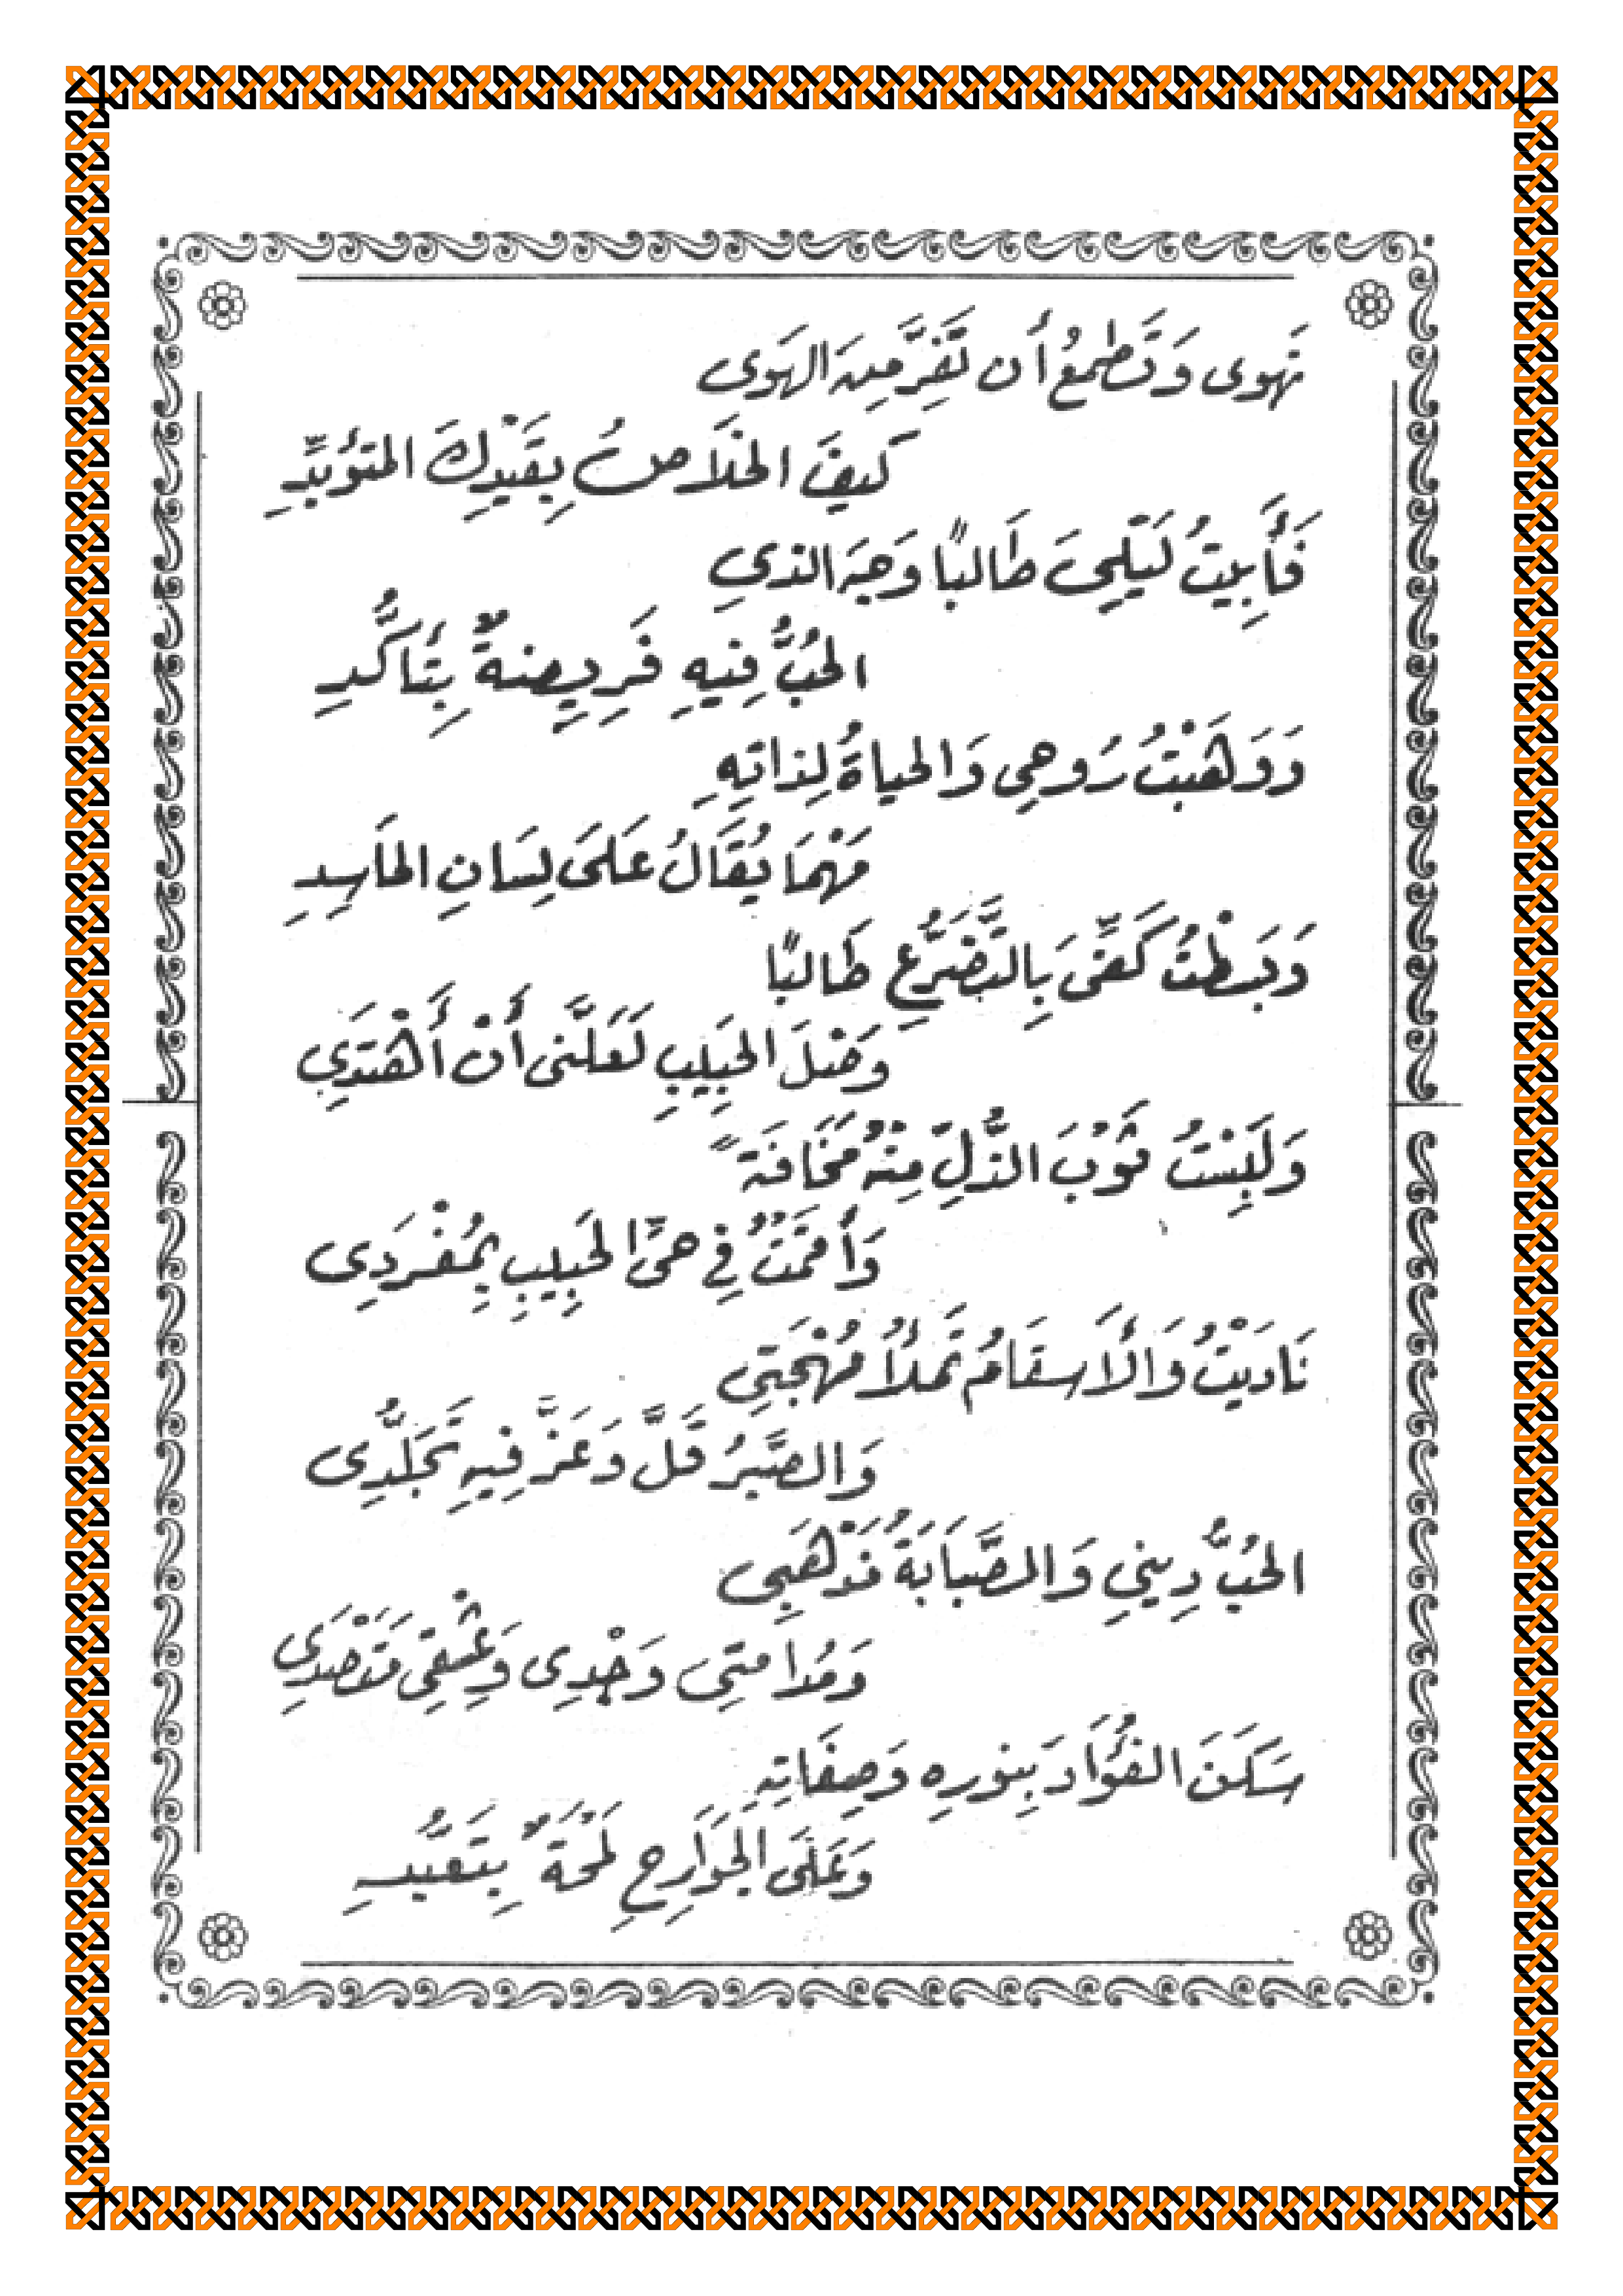 تَهوى وَتَطمعُ أن تَفِرَّ مِنَ الهَوى
كَيفَ الخَلَاصُ بِقَيْدِكَ المتؤبِّدِ
فَأَبِيتُ لَيْلِي طَالبًا وَجهَ الذي
الحُبُّ فِيهِ فَرِيضةٌ بِتَأكُّدِ
وَوَهَبْتُ رُوحِي وَالحياةُ لِذاتِهِ
مَهْمَا يُقَالُ عَلَى لِسَانِ الحَاسِدِ
وَبَسَطْتُ كَفِّىَ بِالتَّضَرُّعِ طَالبًا
وَصْلَ الحَبِيبِ لَعَلَّنى أَنْ أَهْتَدِي
وَلَبِسْتُ ثَوْبَ الذُّلِّ مِنْهُ مَخَافَةً
وَأَقَمْتُ فِي حىِّ الحَبِيبِ بِمُفْرَدِى
نَادَيْتُ وَالأَسقَامُ تَملأُ مُهْجَتِي
وَالصَّبرُ قَلَّ وَعَزَّ فِيهِ تَجَلُّدِى
الحُبُّ دِينِي وَالصَّبَابَةُ مَذْهَبِى
وَمُدامتِى وَجْدِى وَعِشْقِى مَقْصَدِي
سَكَنَ الفُؤَادَ بِنورِهِ وَصِفَاتِهِ
وَعَلَى الجَوَارِحِ لَمْحَةٌ